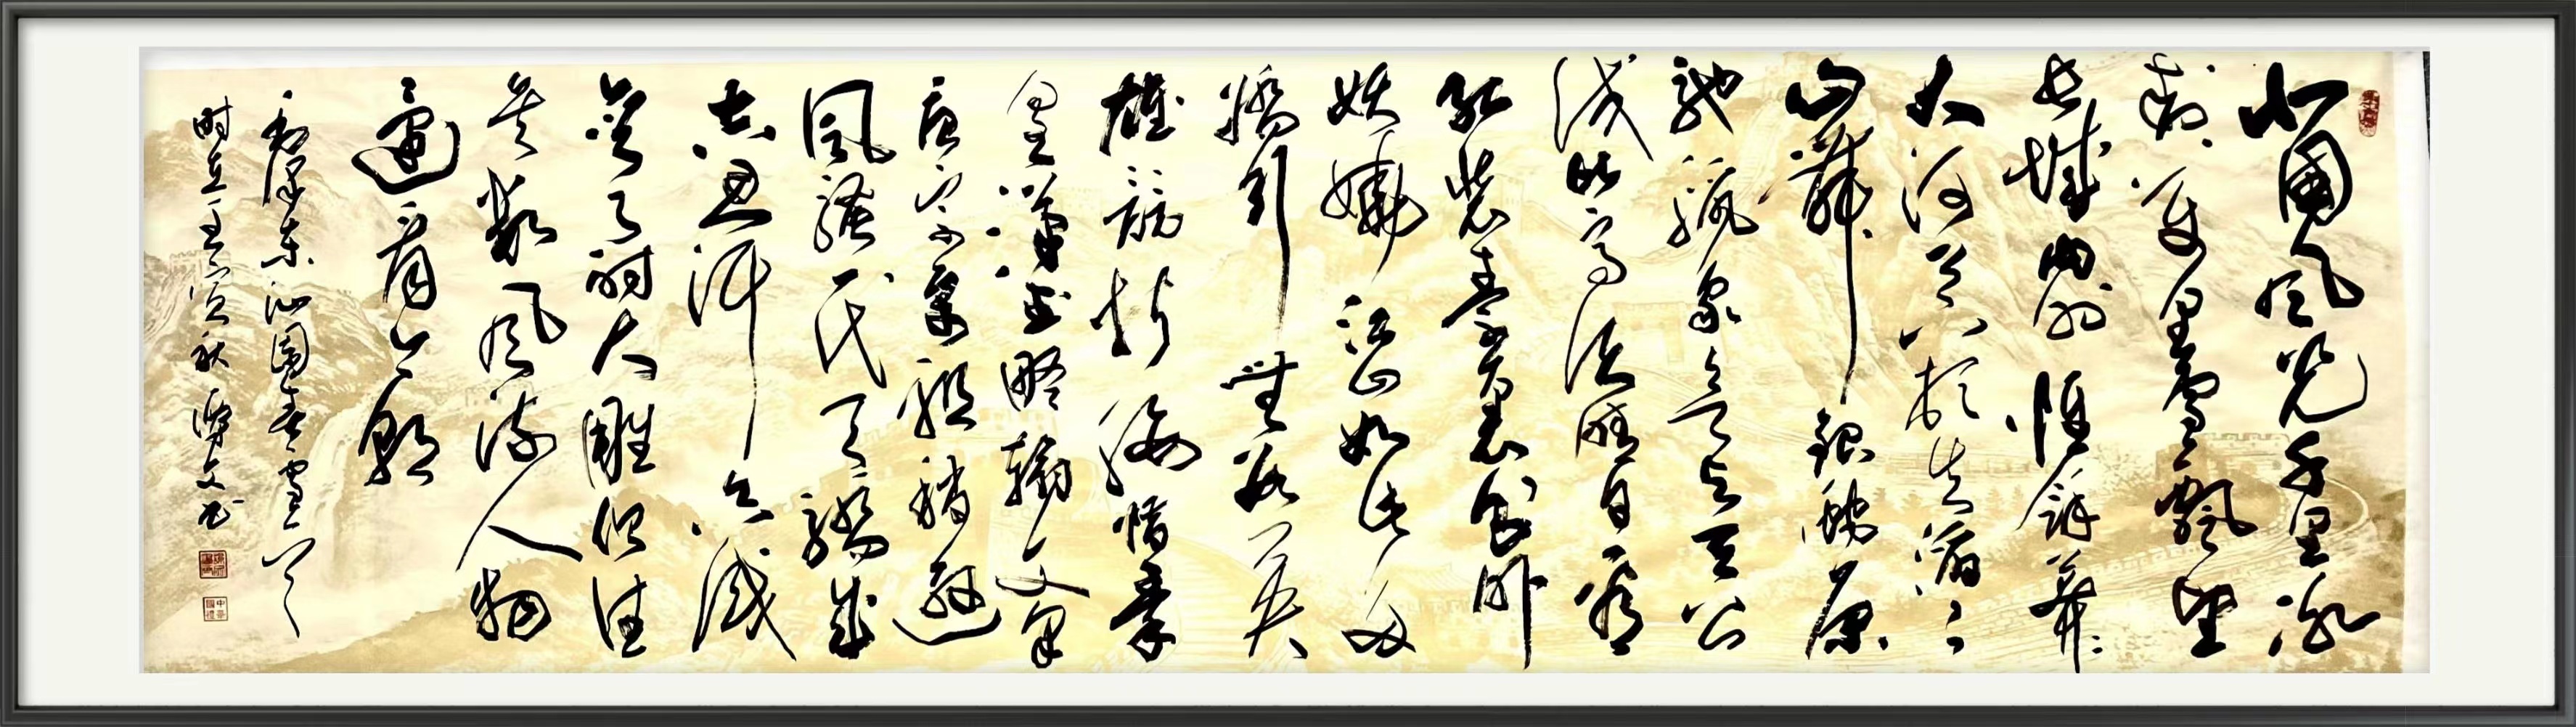 北國風光千里冰
封萬里雪飄望
长城内外惟餘莽々
大河上下顿失滔々
山舞银蛇原
驰蜡象欲与天公
试比高须晴日看
红装素裹分外
妖娆江山如此多
嬌引無数英
雄競折腰惜秦
皇漢武略輸文采
唐宗宋祖稍遜
風騷一代天驕成
吉思汗只識
弯弓射大雕俱往
矣数風流人物
還看今朝
毛泽东沁园春雪
时在壬寅秋文书